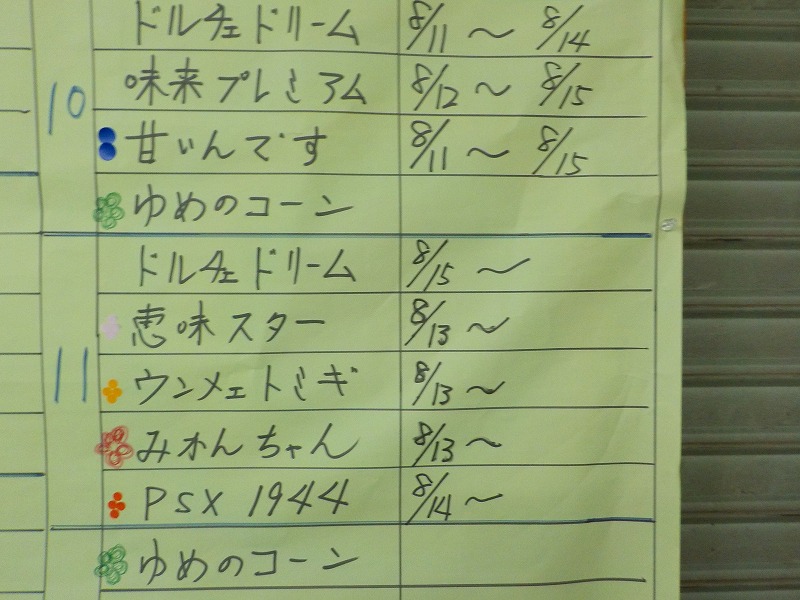 ドルチェドリーム 8/11 〜 8/14
10 味来プレミアム 8/12 〜 8/15
甘いんです 8/11 〜 8/15
ゆめのコーン
ドルチェドリーム 8/15 〜
恵味スター 8/13 〜
11 ウンメェトミギ 8/13 〜
みわんちゃん 8/13 〜
PSX 1944 8/14 〜
ゆめのコーン